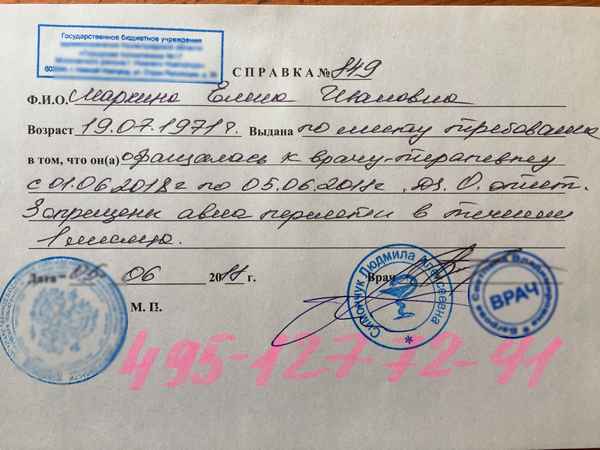 Государственное бюджетное учреждения
СПРАВКА № 849
Ф.И.О. Маркина Елена Ивановна
Возраст 19.07.1971г. Выдана по месту требования
в том, что он(а) обращалась к врачу-терапевту
с 01.06.2018г по 05.06.2018г. Дз. О. отит.
Запрещены авиа перелеты в течении
1 месяца.
Дата 06 2018 г. Врач
М. П.
Симончук Людмила Алексеевна
ВРАЧ
495-127-72-91